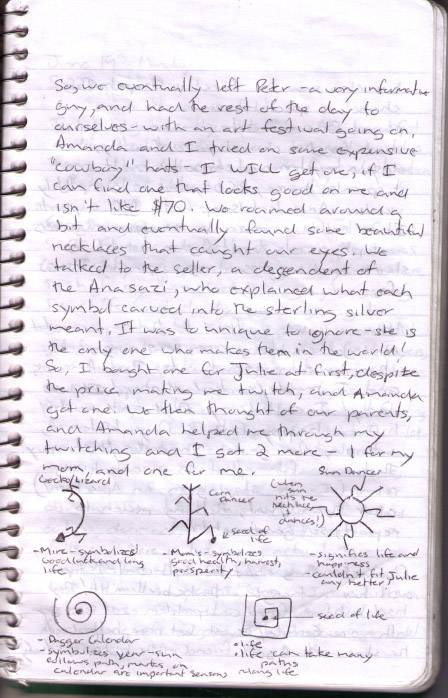 So, we eventually left Peter - a very informative
guy, and had the rest of the day to
ourselves - with an art festival going on.
Amanda and I tried on some expensive
"cowboy" hats - I WILL get one, if I
can find one that looks good on me and
isn't like $70. We roamed around a
bit and eventually found some beautiful
necklaces that caught our eyes. We
talked to the seller, a descendent of
the Anasazi, who explained what each
symbol carved into the sterling silver
meant. It was to unique to ignore - she is
the only one who makes them in the world!
So, I bought one for Julie at first, despite
the price making me twitch, and Amanda
got one. We then thought of our parents,
and Amanda helped me through my
twitching and I got 2 more - 1 for my
mom, and one for me.
Gecko/Lizard
- Mine - symbolizes
Good luck and long
life
Corn
Dancer
seed of
life
- Mom's - symbolizes
good health, harvest,
prosperity
Sun Dancer
(when
sun
hits the
necklace,
dances!)
- signifies life and
happiness
- couldn't fit Julie
any better!
- Dagger Calendar
- symbolizes year - sun
follows path, marks on
calendar are important seasons
seed of life
• life
• life can take many
paths
along life